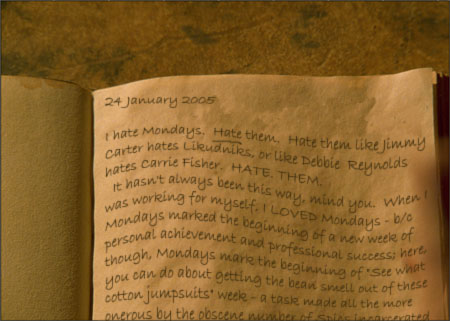 24 January 2005
I hate Mondays. Hate them. Hate them like Jimmy
Carter hates Likudniks, or like Debbie Reynolds
hates Carrie Fisher. HATE. THEM.
It hasn't always been this way, mind you. When I
was working for myself, I LOVED Mondays - b/c
Mondays marked the beginning of a new week of
personal achievement and professional success; here,
though, Mondays mark the beginning of "See what
you can do about getting the bean smell out of these
cotton jumpsuits" week - a task made all the more
onerous by the obscene number of Spics incarcerated